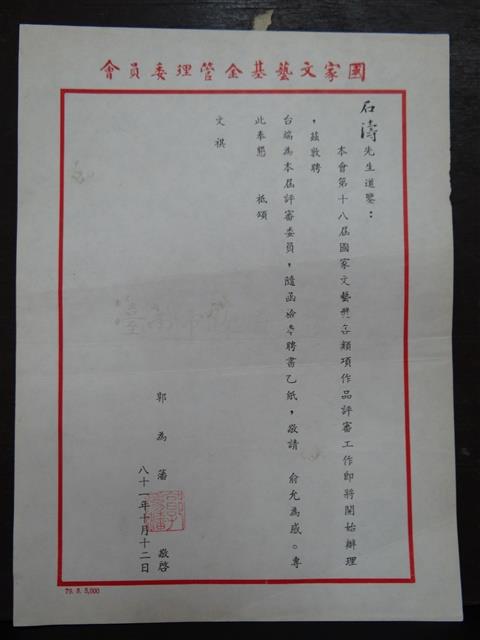 國家文藝基金管理委員會
石濤先生道鑒：
本會第十八屆國家文藝獎各類項作品評審工作即將開始辦理
，茲敦聘
台端為本屆評審委員，隨函檢奉聘書乙紙，敬請　俞允為感。專
此奉懇　祗頌
文祺
郭為藩　敬啓
八十一年十月十二日
79. 8. 5,000